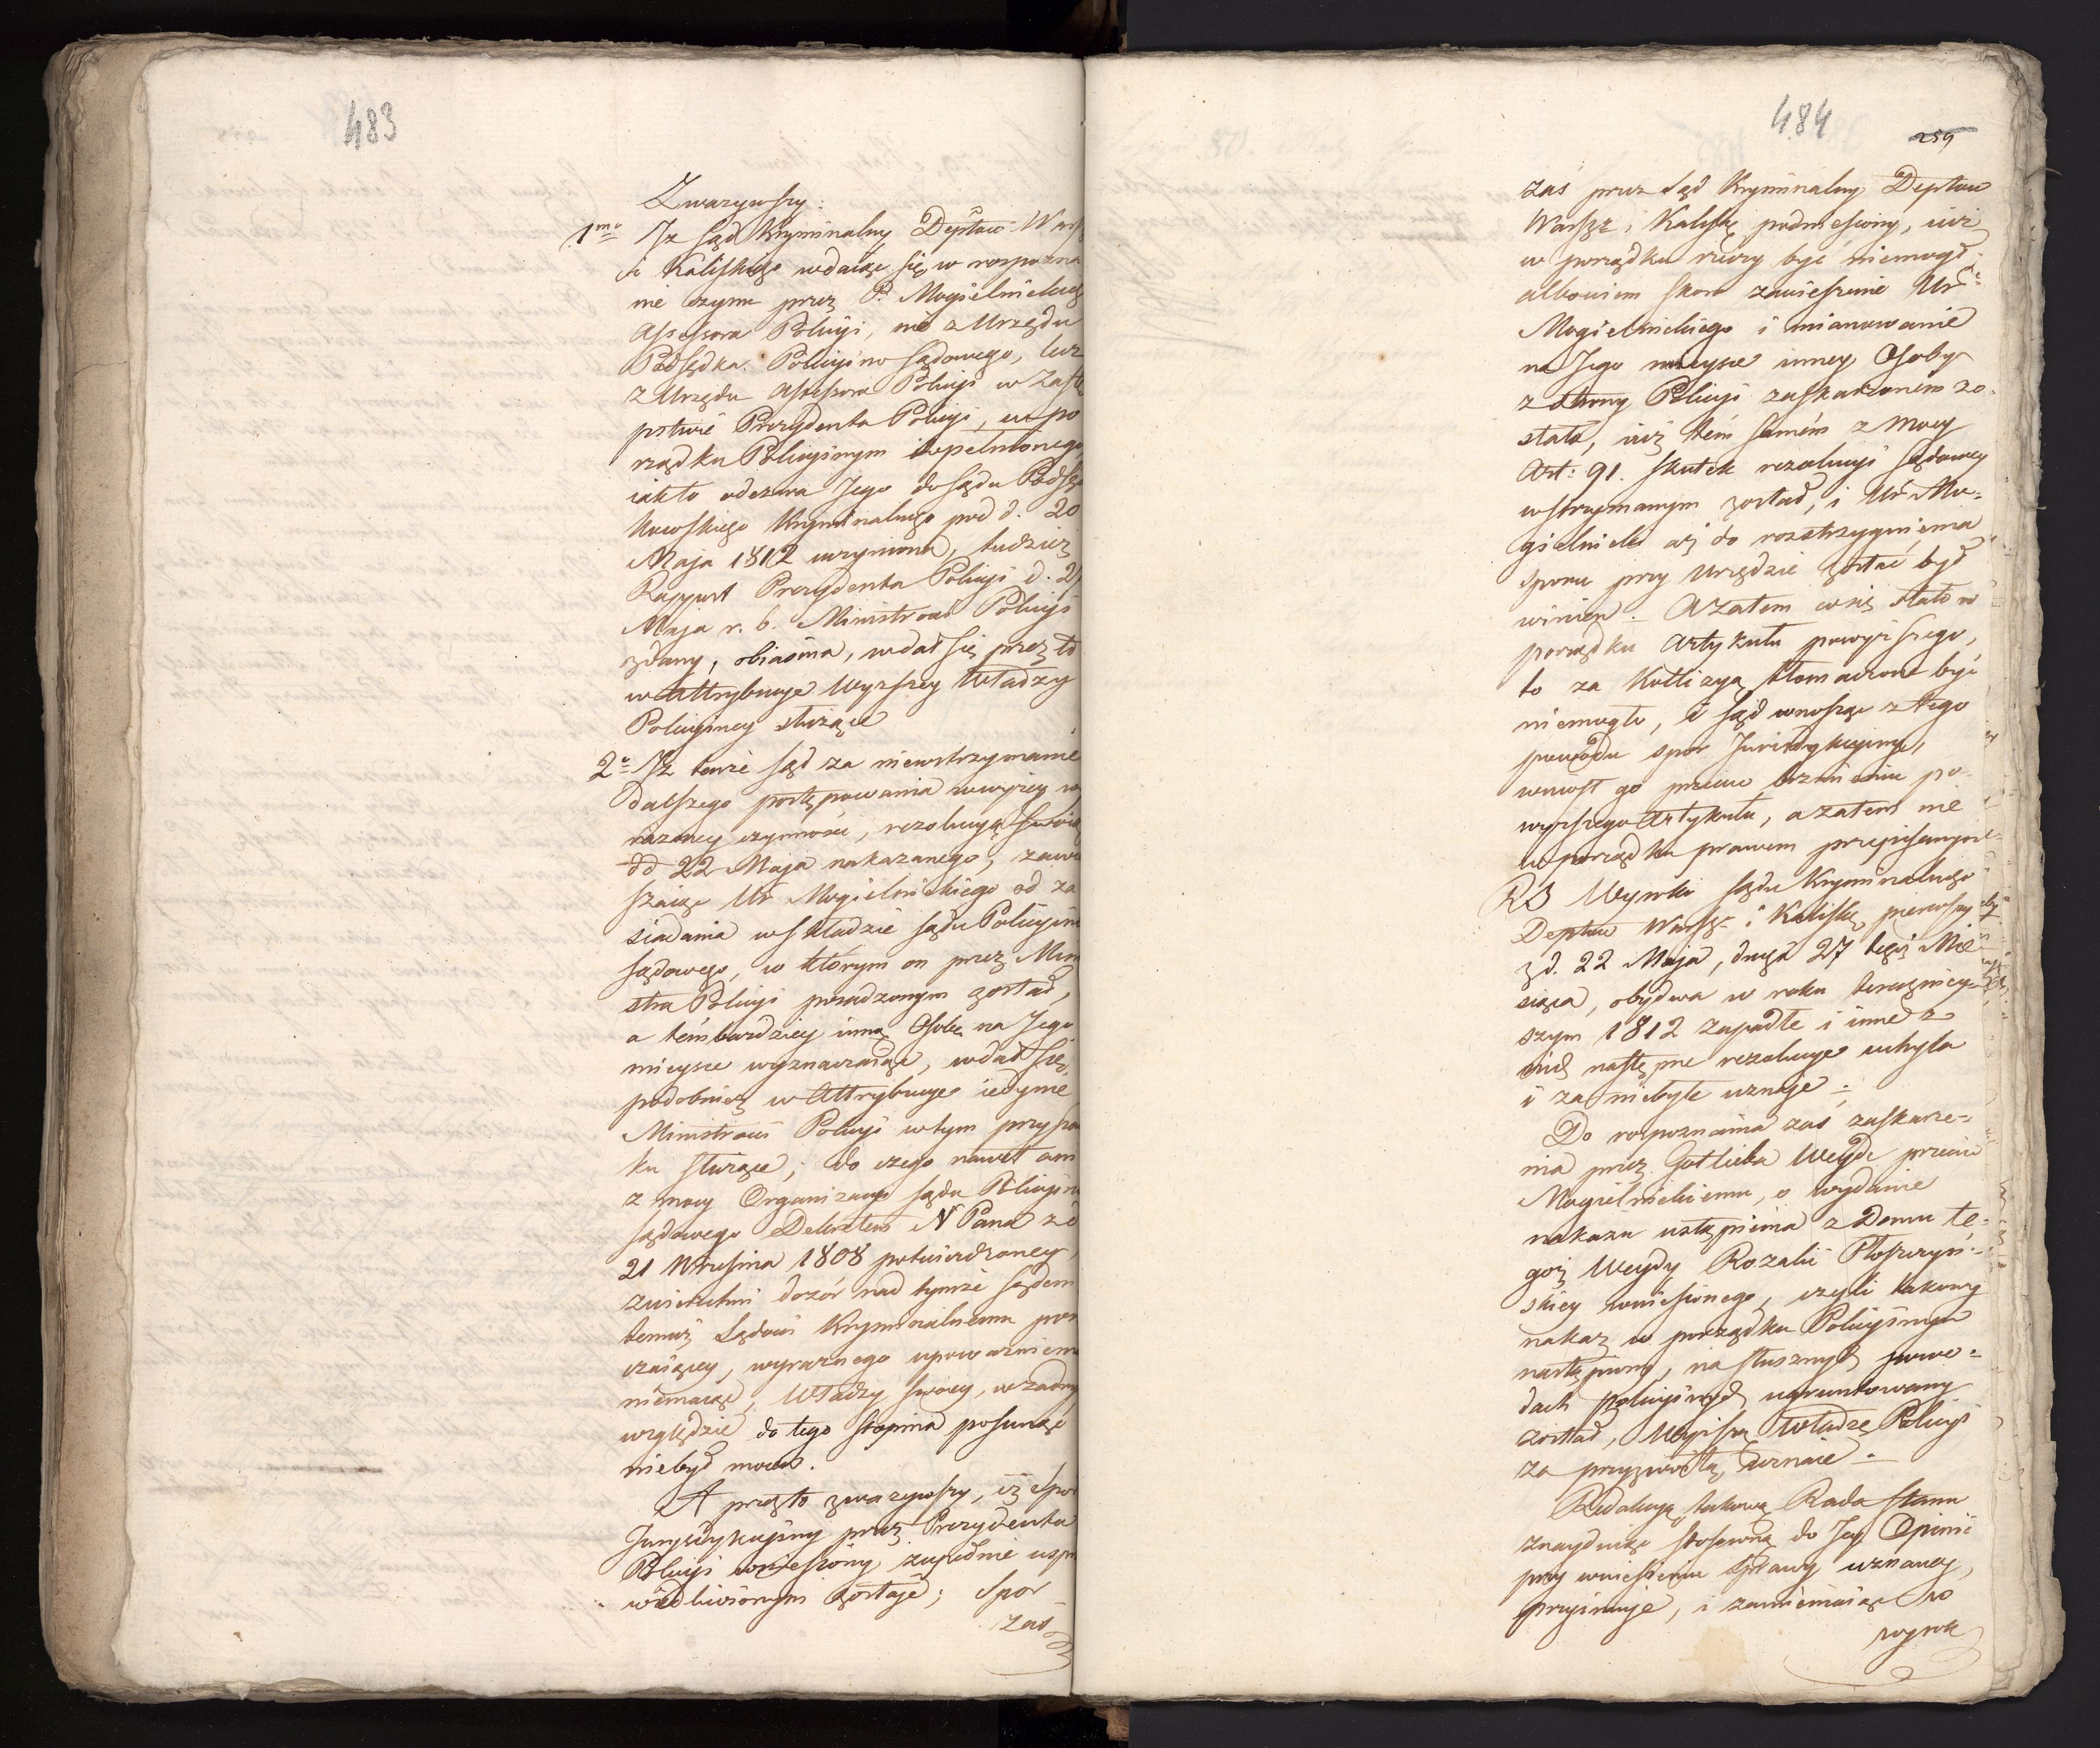 483
Zwazywszy:
1mo Iż Sąd Kryminalny Deptow Warsz
i Kaliskiego wdaiąc się w rozpozna
nie czynu przez P. Mogielnickieg
Assessora Policyi, nie z Urzędu
Podsędka Policyino Sądowego, lecz
z Urzędu Assessora Policyi w Zastę
pstwie Prezydenta Policyi, w po
rządku Policyinym dopełnionego
iak to odezwa Jego do Sądu Podsę
Kryminalnego pod d. 20
Maja 1812 uczyniona, tudzież
Rapport Prezydenta Policyi d. 2
Maja r. b. Ministrowi Policyi
zdany, obiaśnia, wdał się przez to
w Attrybucye Wyższey Władzy
Policyiney służące
2o Iż tenże Sąd za niewstrzymanie
dalszego postępowania w wyżey wy
rażoney czynności, rezolucyą swoią
od 22 Maja nakazanego, zawie
szaiąc Ur Mogielnickiego od za
siadania w składzie Sądu Policyino
Sądowego, w którym on przez Mini
stra Policyi posadzonym został,
a tém bardziey inną Osobę na Jego
mieysce wyznaczaiąc, wdał się
podobnież w Attrybucye iedynie
Ministrowi Policyi w tym przypad
ku służące; do czego nawet ani
z mocy Organizacyi Sądu Policyino
Sądowego Dekretem N Pana z d
21 Września 1808 potwierdzoney
zwierzchni dozór nad tymże Sądem
temuż Sądowi Kryminalnemu poru
czaiącey, wyraznego upoważnienia
niemaiąc, Władzy swoiey, w żadnym
względzie do tego stopnia posunąć
niebył mocen.
A przeto zważywszy, iż Spor
Jurysdykcyiny przez Prezydenta
Policyi wniesiony zupełnie uspra
wiedliwionym zostaje; Spor
zaś
484
259
zaś przez Sąd Kryminalny Deptow
Warszz i Kalisk podniesiony, iuż
w porządku rzeczy być niemógł:
albowiem skoro zawieszenie Ur
Mogielnickiego i mianowanie
na Jego mieysce inney Osoby
z strony Policyi zaskarżonem zo-
stało, iuż tém samém z mocy
Art: 91. skutek rezolucyi Sądowey
wstrzymanym został, i Ur Mo-
gielnicki aż do rozstrzygnienia
sporu przy Urzędzie zostać był
winien. A zatem co się stało w
porządku Artykułu powyższego,
to za Kollizyą tłomaczone być
niemogło, i Sąd wnosząc z tego
powodu spor Jurisdykcyiny,
wniosł go przeciw brzmieniu po-
wyższego Artykułu, a zatem nie
w porządku prawem przepisanym
RS Wyroki Sądu Kryminalnego
Deptow Warsz i Kalisk, pierwszy
z d. 22 Maja, drugi 27 tegoż Mie
siąca, obydwa w roku terazniey-
szym 1812 zapadłe i inne z
nich następne rezolucye uchyla
i za niebyłe uznaje.
Do rozpoznania zaś zaskarże-
nia przez Gotlieba Weyde przeciw
Mogielnickiemu, o wydanie
nakazu ustąpienia z Domu te-
goż Weydy Rozalii Płoszczyń-
skiey wniesionego, czyli takowy
nakaz w porządku Policyinym
nastąpiony, na słusznych powo-
dach policyinych ugruntowany
został, Wyższą Władzę Policyi
za przyzwoitą uznaie.
Redakcyą takową Rada Stanu
znayduiąc stosowną do Jey Opinii
przy wniesieniu Sprawy uznaney,
przyimuje, i zamieniaiąc w
wyrok